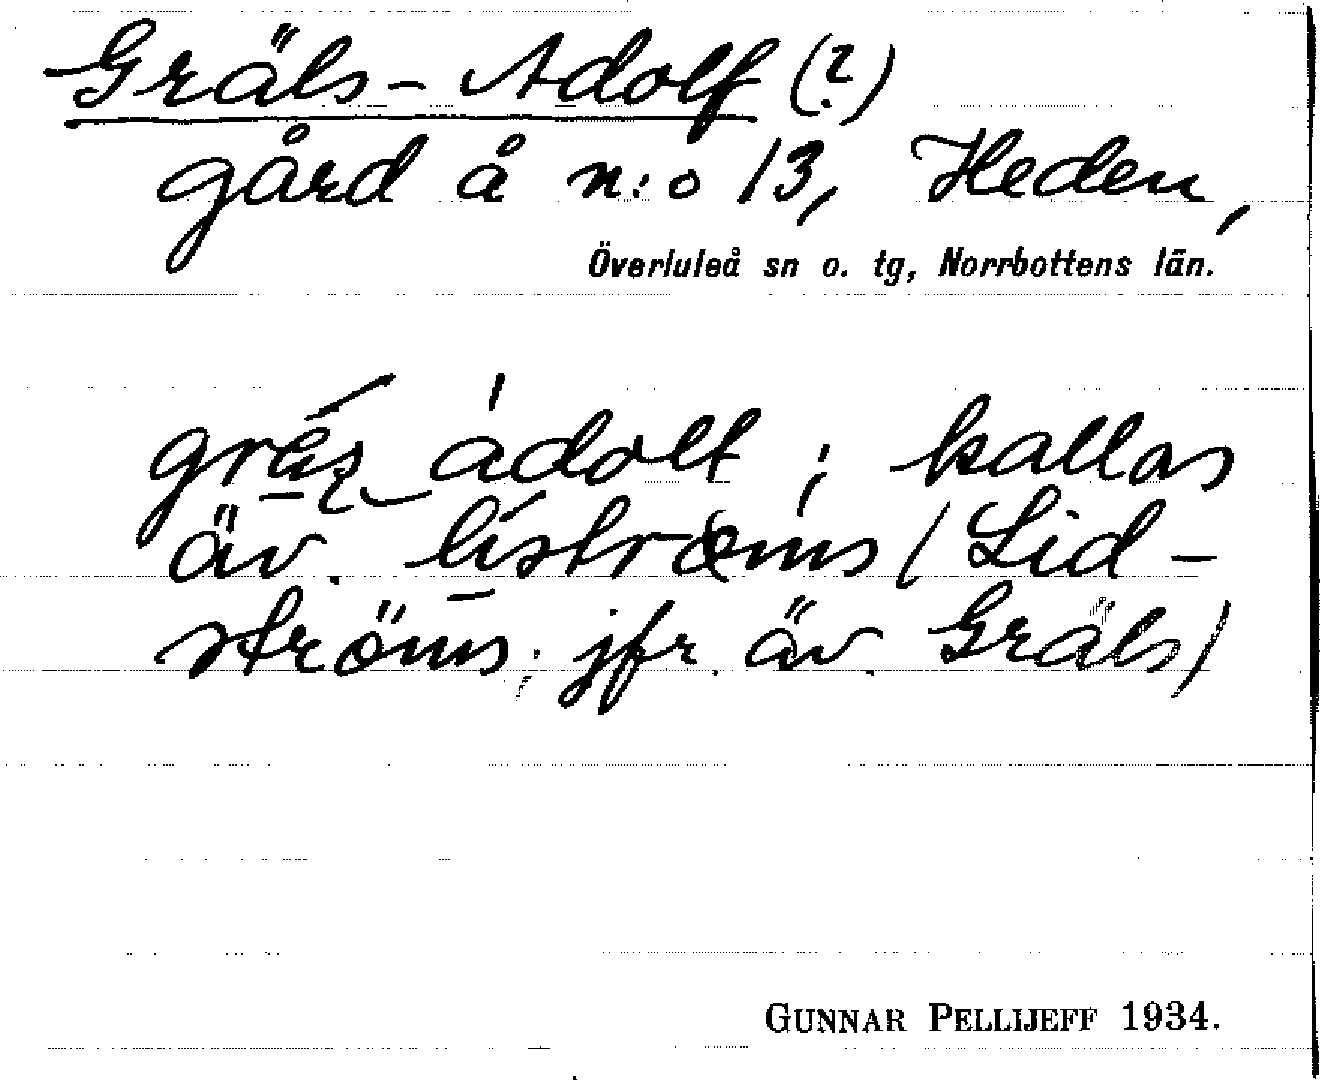 Gräls-Adolf (?)
gård å n:o 13, Heden,
Överluleå sn o. tg, Norrbottens län.
adolf ; kallas
äv. listrœms (Lid-
ströms; jfr. äv. Gräls)
GUNNAR PELLIJEFF 1934.